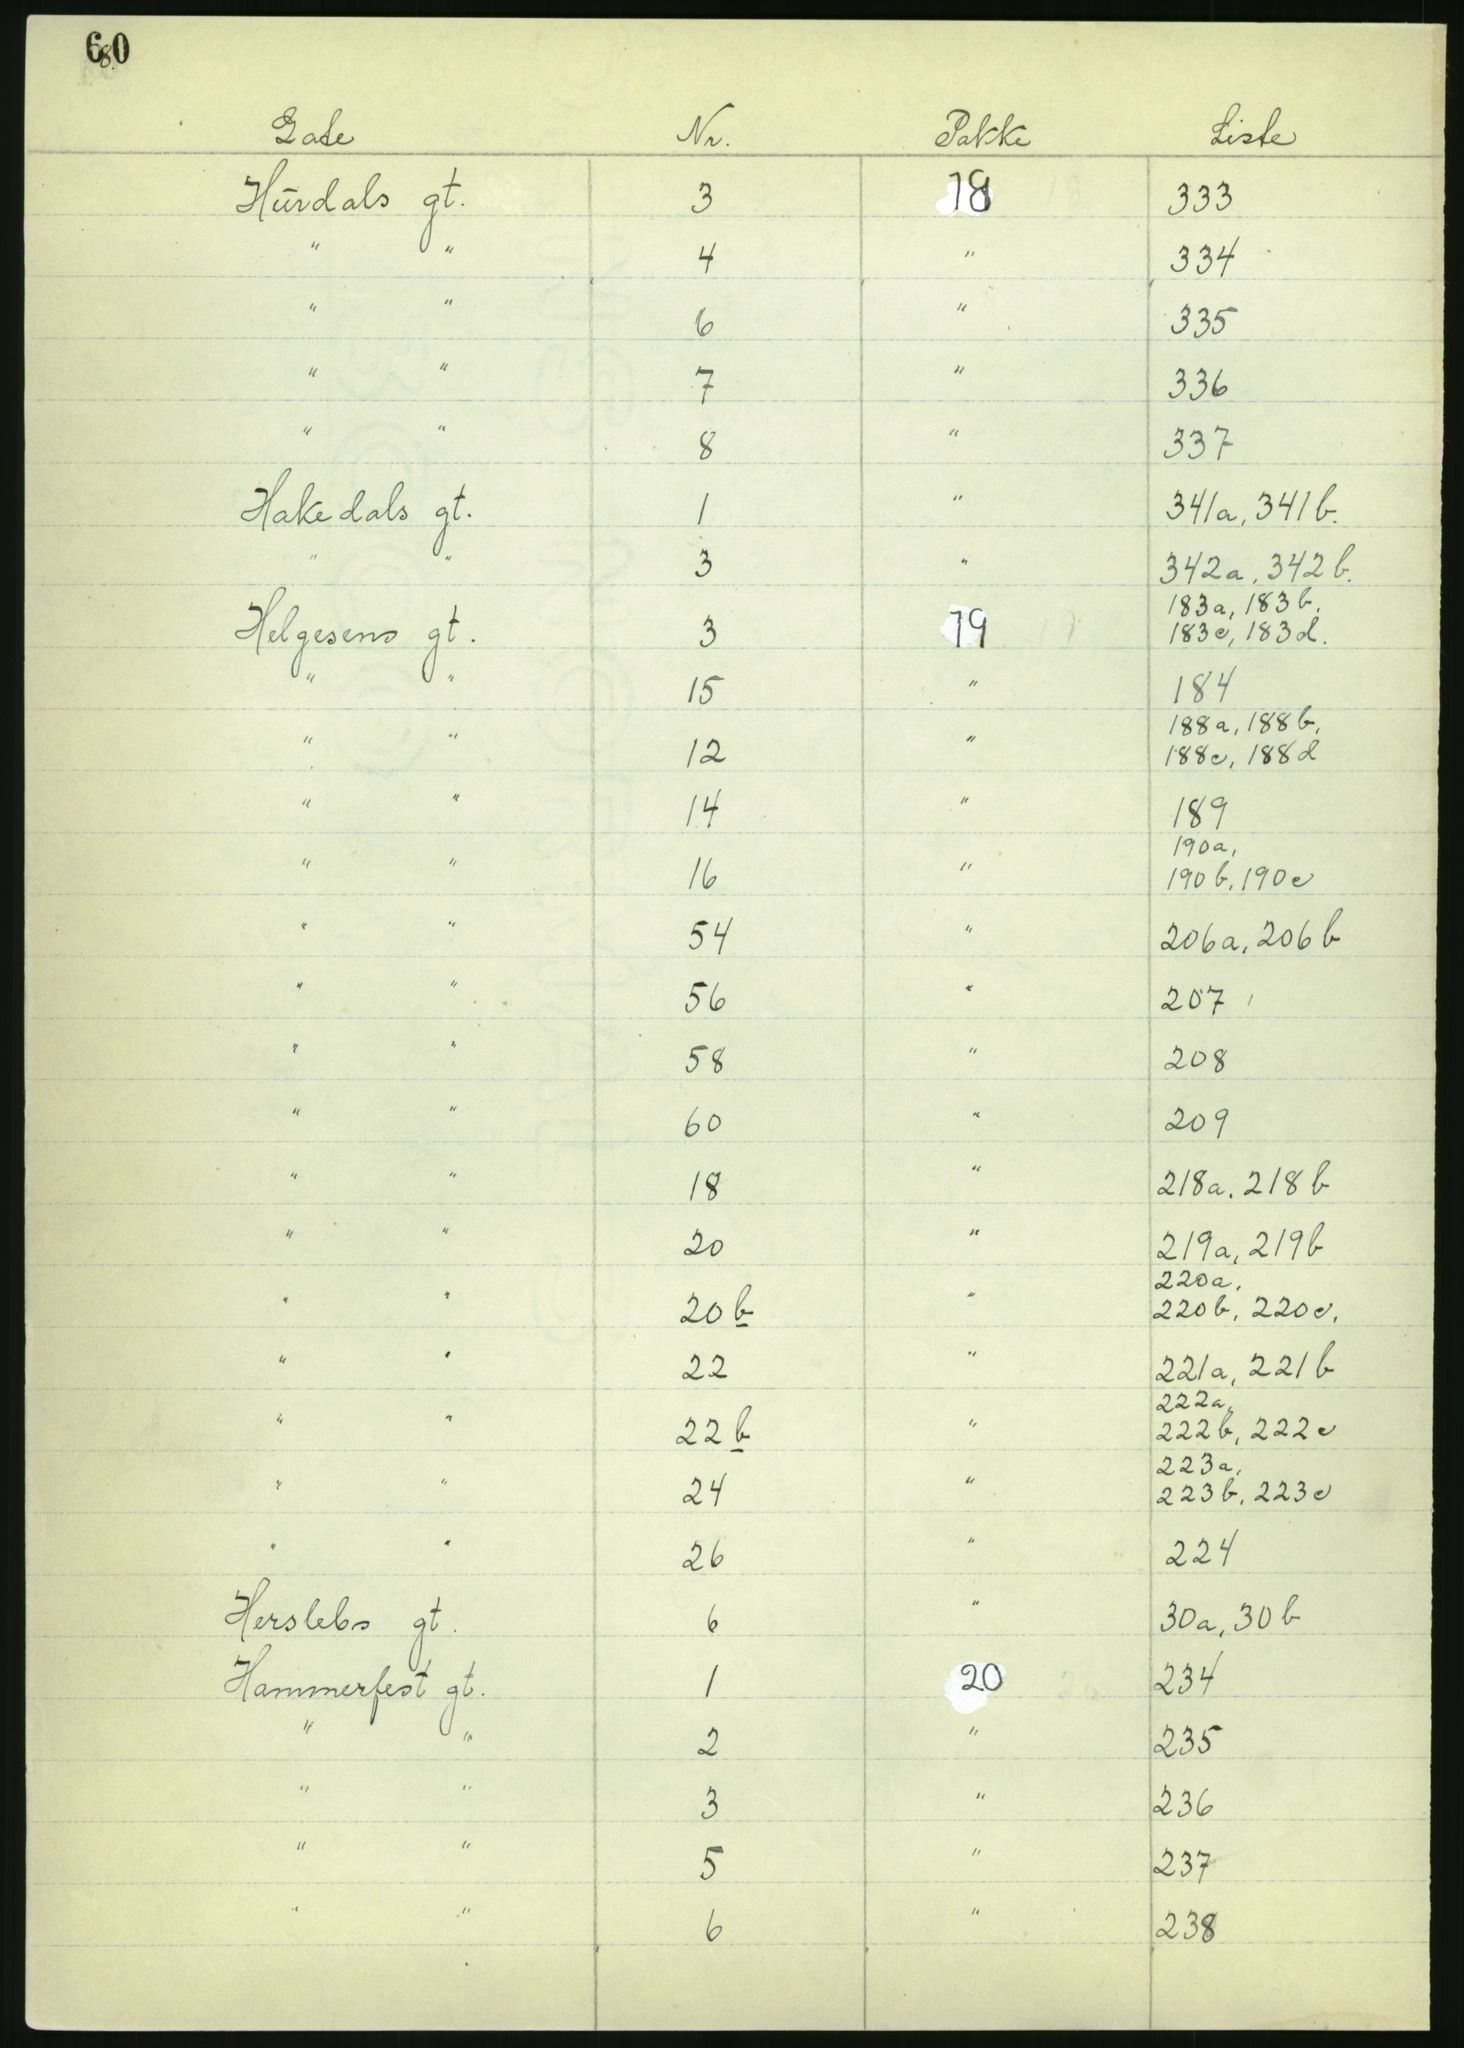 60
8.
Gate Nr. Pakke Liste
Hūrdals gt. 3 18 333
" " 4 " 334
" " 6 " 335
" " 7 " 336
" " 8 " 337
Hakedals gt. 1 " 341a, 341b.
" " 3 " 342a, 342b.
183a, 183b,
Helgesens gt. 3 19 183c, 183d.
" " 15 " 184
188a, 188b,
" " 12 " 188c, 188d
" " 14 " 189
190a,
" " 16 " 190b, 190c
" " 54 " 206a, 206b
" " 56 " 207
" " 58 " 208
" " 60 " 209
" " 18 " 218a, 218b
" " 20 " 219a, 219b
220a,
" " 20b " 220b, 220c,
" " 22 " 221a, 221b
222a,
" " 22b " 222b, 222c
223a,
" " 24 " 223b, 223c
" " 26 " 224
Herslebs gt. 6 " 30a, 30b
Hammerfest gt. 1 20 234
" " 2 " 235
" " 3 " 236
" " 5 " 237
" " 6 " 238